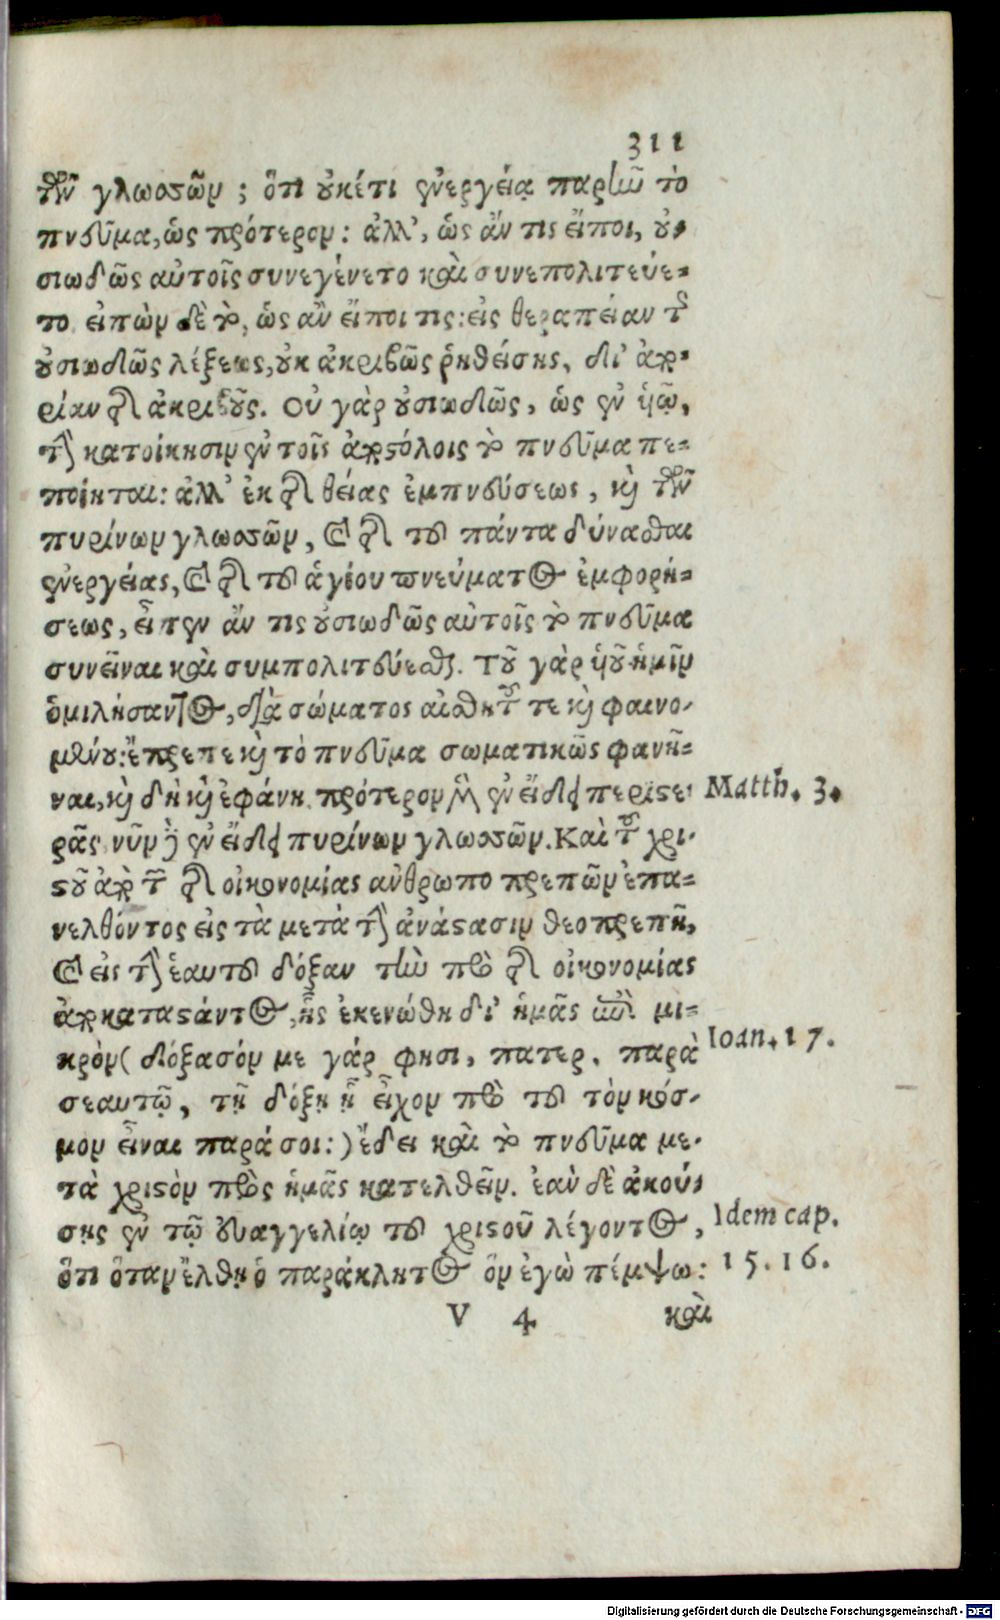 311
τῶν γλωσσῶν; ὅτι οὐκέτι ἐνεργείᾳ παρὴν τὸ
πνεῦμα, ὡς πρότερον: ἀλλ', ὡς ἄν τις εἴποι, οὐ-
σιωδῶς αὐτοῖς συνεγένετο καὶ συνεπολιτεύε-
το εἰπὼν δὲ τὸ, ὡς ἂν εἴποι τις: εἰς θεραπείαν τοῦ
οὐσιωδῶς λέξεως, οὐκ ἀκριβῶς ῥηθείσης, δι' ἀπο-
ρίαν τῆς ἀκριβοῦς. Οὐ γὰρ οὐσιωδῶς, ὡς ἐν υἱῷ,
τὴν κατοίκησιν ἐν τοῖς ἀποστόλοις τὸ πνεῦμα πε-
ποίηται: ἀλλ' ἐκ τῆς θείας ἐμπνεύσεως, καὶ τῶν
πυρίνων γλωσσῶν, καὶ τῆς τοῦ πάντα δύνασθαι
ἐνεργείας, καὶ τῆς τοῦ ἁγίου πνεύματος ἐμφορή-
σεως, εἶπεν ἄν τις οὐσιωδῶς αὐτοῖς τὸ πνεῦμα
συνεῖναι καὶ συμπολιτεύεσθαι. Τοῦ γὰρ υἱοῦ ἡμῖν
ὁμιλήσαντος, διὰ σώματος αἰσθητοῦ τε καὶ φαινο-
μένου: ἔπρεπε καὶ τὸ πνεῦμα σωματικῶς φανῆ-
ναι, καὶ δὴ καὶ ἐφάνη πρότερον μὲν ἐν εἴδει περιστε- Matth. 3.
ρᾶς νῦν δὲ ἐν εἴδει πυρίνων γλωσσῶν. Καὶ τοῦ χρι-
στοῦ ἀπὸ τῶν τῆς οἰκονομίας ἀνθρωποπρεπῶν ἐπα-
νελθόντος εἰς τὰ μετὰ τὴν ἀνάστασιν θεοπρεπῆ,
καὶ εἰς τὴν ἑαυτοῦ δόξαν τὴν πρὸ τῆς οἰκονομίας
ἀποκαταστάντος, ἧς ἐκενώθη δι' ἡμᾶς παρὰ μι-
κρὸν( δόξασόν με γάρ φησι, πατερ, παρὰ Ioan. 17.
σεαυτῷ, τῇ δόξῃ ᾗ εἶχον πρὸ τοῦ τὸν κόσ-
μον εἶναι παρά σοι:) ἔδει καὶ τὸ πνεῦμα με-
τὰ χριστὸν πρὸς ἡμᾶς κατελθεῖν. ἐὰν δὲ ἀκού-
σῃς ἐν τῷ εὐαγγελίῳ τοῦ χριστοῦ λέγοντος, Idem cap.
ὅτι ὅταν ἔλθῃ ὁ παράκλητος ὃν ἐγὼ πέμψω: 15. 16.
V 4 καὶ
Digitalisierung gefördert durch die Deutsche Forschungsgemeinschaft - DFG